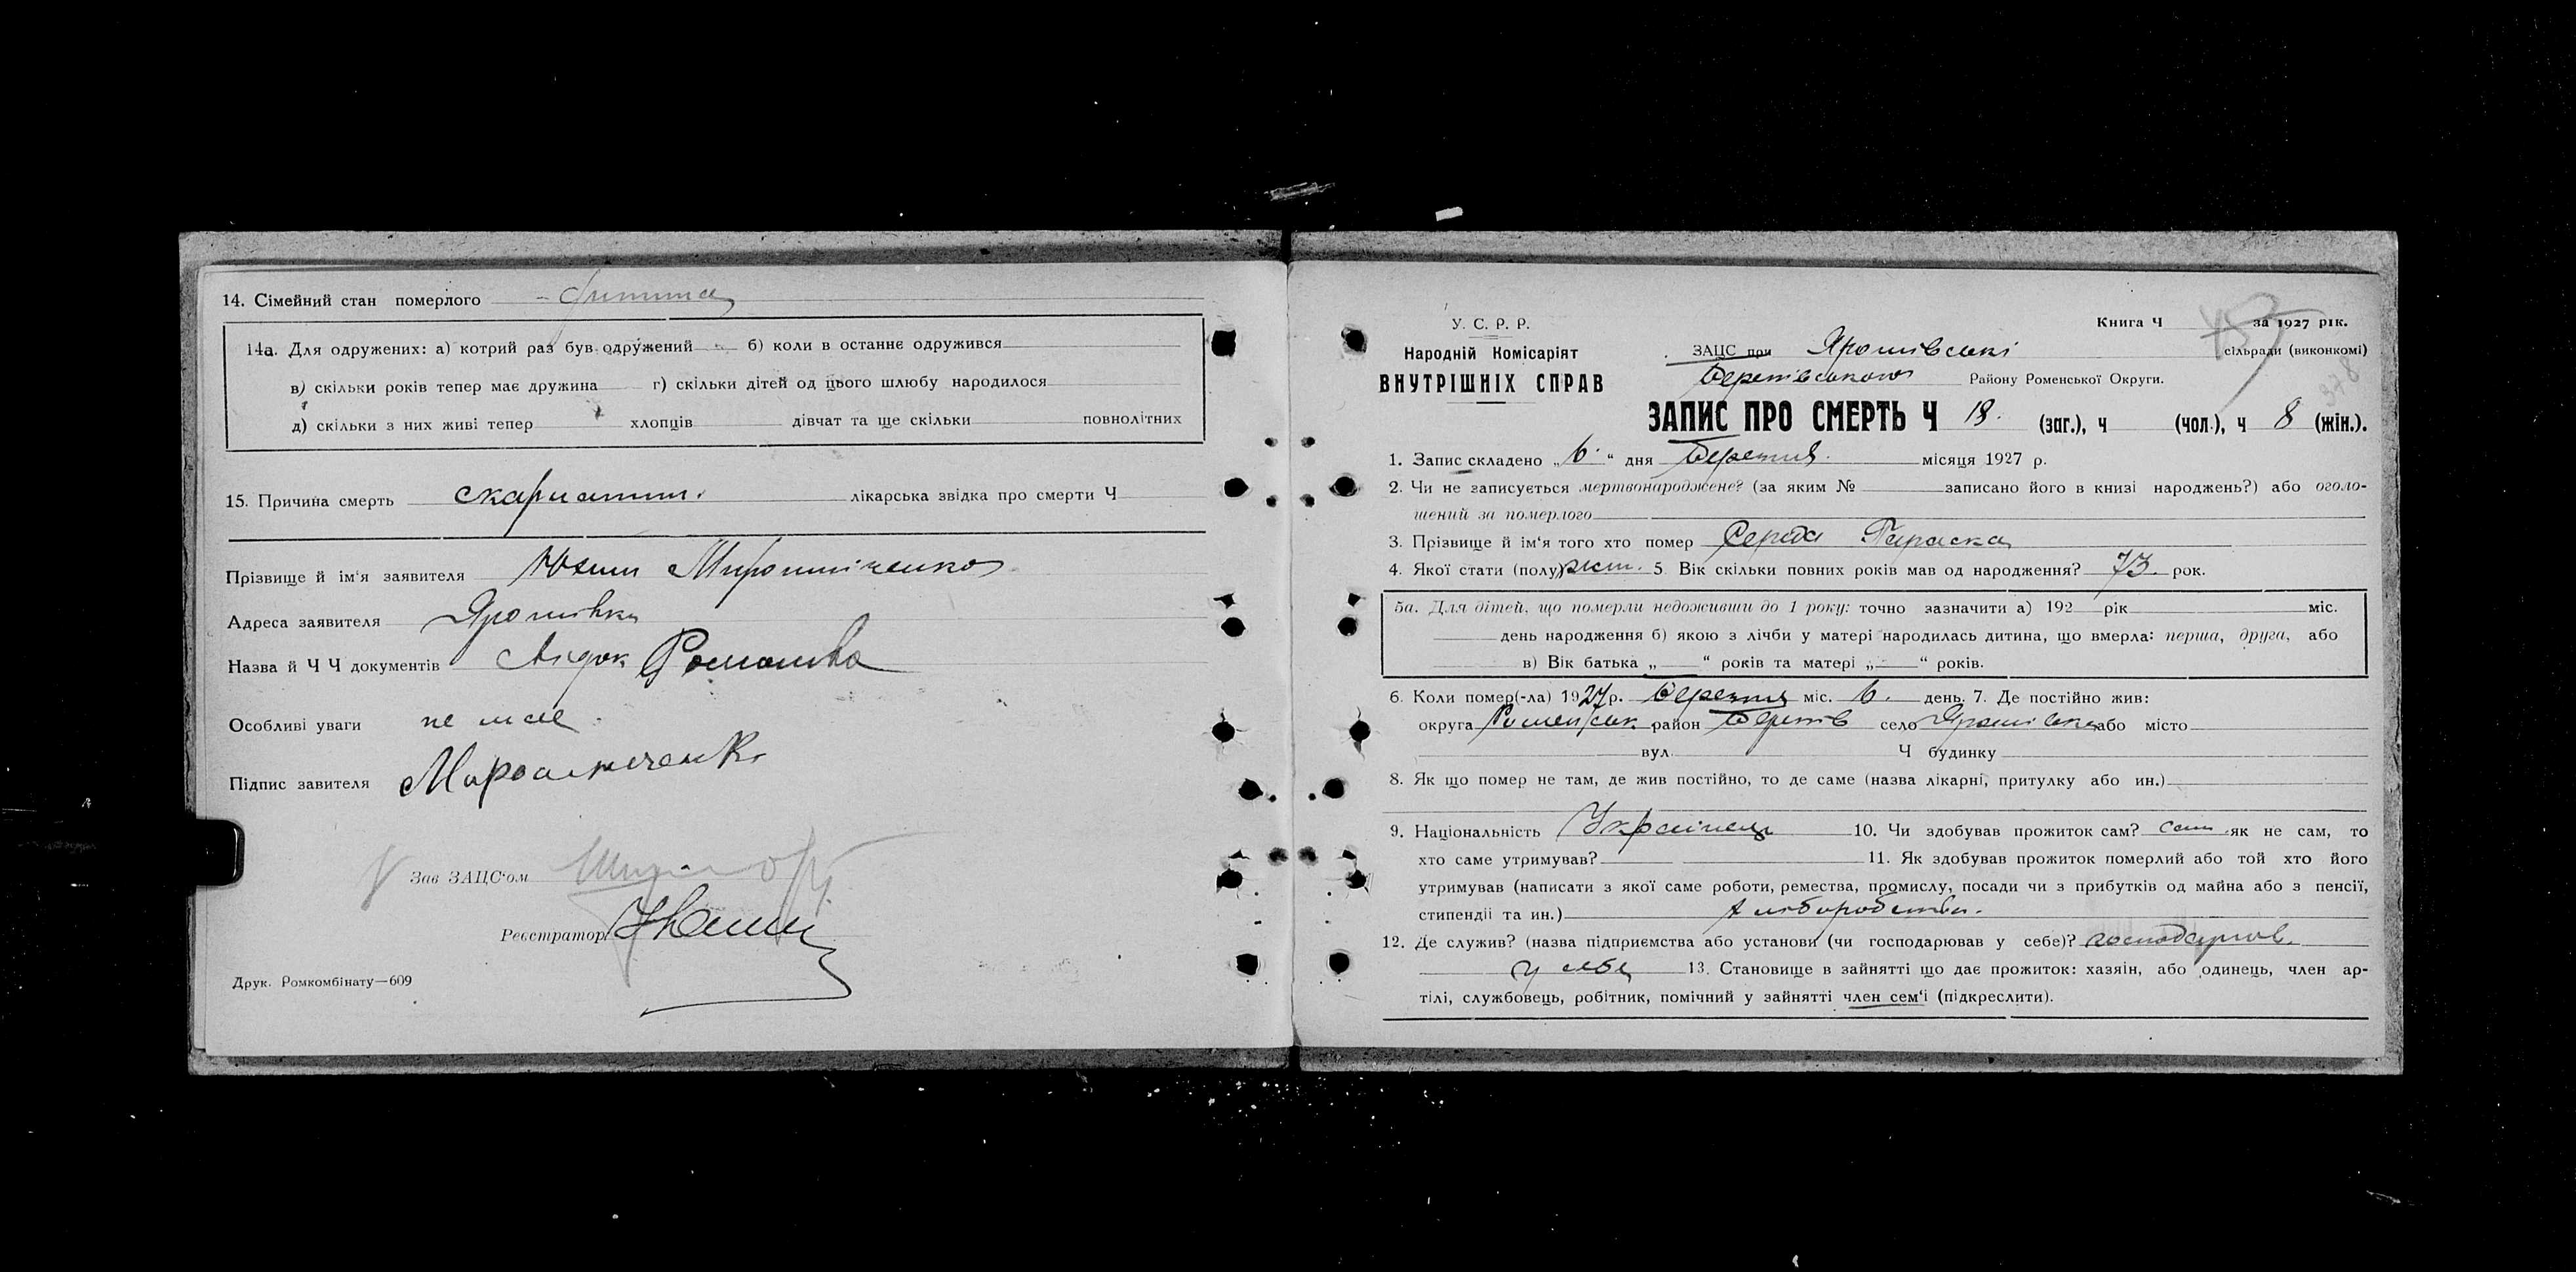 14. Сімейний стан померлого - дитина
14а. Для одружених: а) котрий раз був одружений б) коли в останнє одружився
в) скільки років тепер має дружина г) скільки дітей од цього шлюбу народилося
д) скільки з них живі тепер хлопців дівчат та ще скільки повнолітних
15. Причина смерть скарлатин. лікарська звідка про смерти Ч
Прізвище й ім'я заявителя Юхим Мирошніченко
Адреса заявителя Ярошівка
Назва й Ч Ч документів Романова
Особливі уваги не має
Підпис завителя Мирошниченко
Зав ЗАЦС'ом
Реєстратор
Друк. Ромкомбінату—609
У. С. Р. Р.
Народній Комісаріят
ВНУТРІШНІХ СПРАВ
Книга Ч за 1927 рік.
ЗАЦС при Ярошівські сільради (виконкомі)
Беревського Району Роменської Округи.
378
ЗАПИС ПРО СМЕРТЬ Ч 18. (заг.), ч (чол.), ч 8 (жін.).
1. Запис складено „6." дня Березня. місяця 1927 р.
2. Чи не записується мертвонароджене? (за яким № записано його в книзі народжень?) або оголо-
шений за померлого
3. Прізвище й ім'я того хто помер Середа Параска
4. Якої стати (полу) жін. 5 Вік скільки повних років мав од народження? 73. рок.
5а. Для дітей, що померли недоживши до 1 року: точно зазначити а) 192 рік міс.
день народження б) якою з лічби у матері народилась дитина, що вмерла: перша, друга, або
в) Вік батька „ " років та матері „ " років.
6. Коли помер(-ла) 1927 р. Березня міс. 6. день. 7. Де постійно жив:
округа Роменськ район село Ярошівка або місто
вул. Ч будинку
8. Як що помер не там, де жив постійно, то де саме (назва лікарні, притулку або ин.)
9. Національність Українець 10. Чи здобував прожиток сам? сам як не сам, то
хто саме утримував? 11. Як здобував прожиток померлий або той хто його
утримував (написати з якої саме роботи, ремества, промислу, посади чи з прибутків од майна або з пенсії,
стипендії та ин.) хліборобство.
12. Де служив? (назва підприємства або установи (чи господарював у себе)? господарюв.
у себе 13. Становище в зайнятті що дає прожиток: хазяін, або одинець, член ар-
тілі, службовець, робітник, помічний у зайнятті член сем'ї (підкреслити).